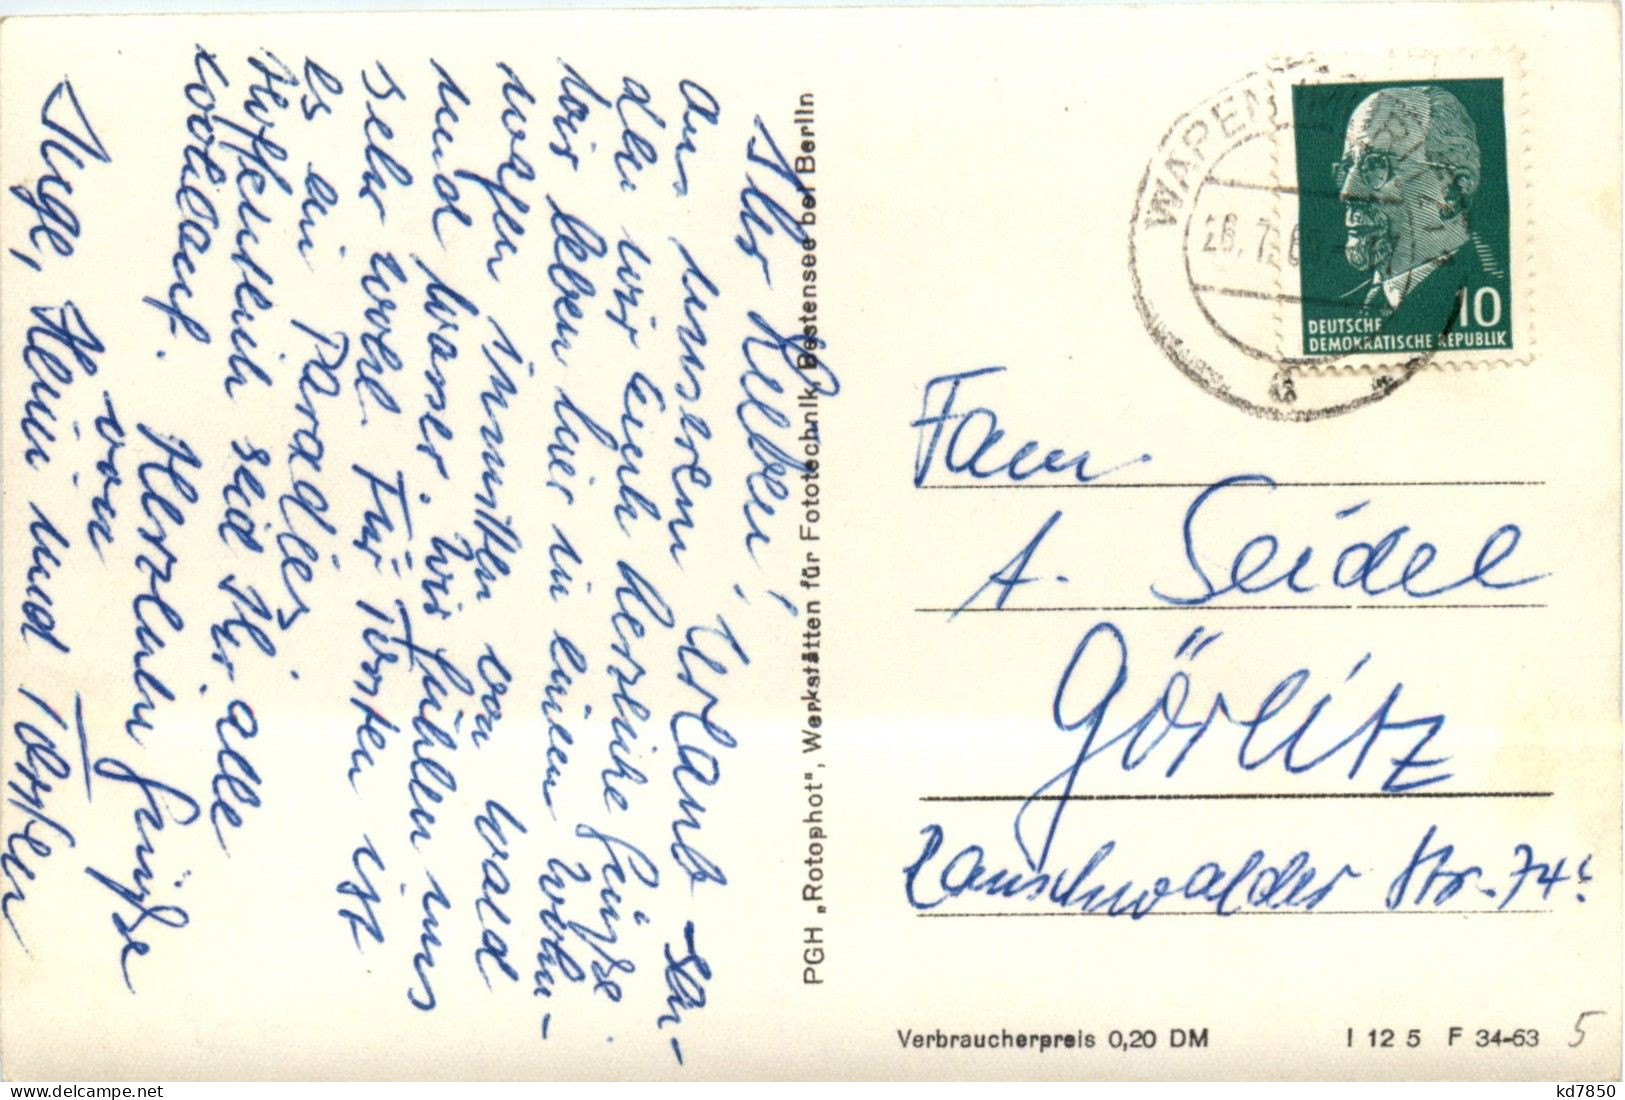 Ihr Lieben!
Aus unserem Urlaub sen-
den wir Euch herzliche Grüße.
Wir leben hier in einem Wohn-
wagen inmitten von Wald
und Wasser. Wir fühlen uns
sehr wohl. Für Torsten ist
es ein Paradies.
Hoffentlich seid Ihr alle
wohlauf. Herzliche Grüße
von
Inge, Heini und Torsten
PGH „Rotophot", Werkstätten für Fototechnik, Bestensee bei Berlin
WAREN (MÜRITZ)
26.7.6
a
10
DEUTSCHE
DEMOKRATISCHE REPUBLIK
Fam
A. Seidel
Görlitz
Rauschwalder Str. 74
Verbraucherpreis 0,20 DM I 12 5 F 34-63 5
kd7850